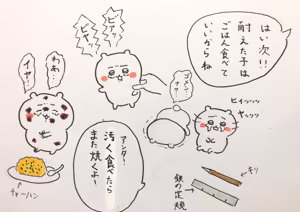 はい次!!
耐えた子は
ごはん食べて
いいからね
ビァッ
ビャッ
ゴメンナ
わあ…
イヤ…
ヒィッッッ
ヤッッッ
チャーハン
アンター、
汚く食べたら
また焼くよ〜
キリ
鉄の定規